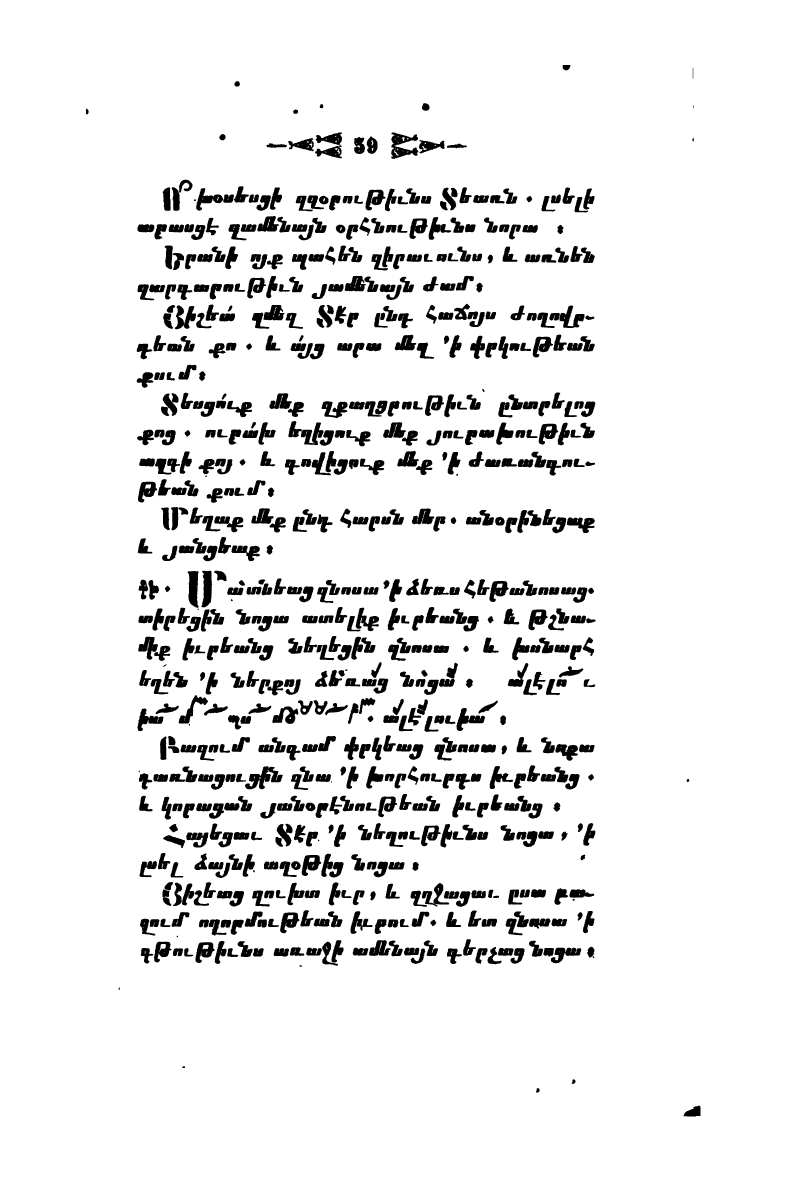 59
Ո՞ խօսեսցի զզօրութիւնս Տեառն ․ լսելի
արասցէ զամենայն օրհնութիւնս նորա ։
Երանի ոյք պահեն զիրաւունս, և առնեն
զարդարութիւն յամենայն ժամ։
Յիշեա՛ զմեզ Տէր ընդ հաճոյս ժողովր֊
դեան քո ․ և ա՛յց արա մեզ ՚ի փրկութեան
քում։
Տեսցո՛ւք մեք զքաղցրութիւն ընտրելոց
քոց ․ ուրա՛խ եղիցուք մեք յուրախութիւն
ազգի քոյ ․ և գովիցուք մեք ՚ի ժառանգու֊
թեան քում։
Մեղաք մեք ընդ հարսն մեր ․ անօրինեցաք
և յանցեաք ։
Մատնեաց զնոսա ՚ի ձեռս հեթանոսաց․
տիրեցին նոցա ատելիք իւրեանց ․ և թշնա֊
միք իւրեանց նեղեցին զնոսա ․ և խոնարհ
եղեն ՚ի ներքոյ ձեռաց նոցա ։ ալէլու
ալէլուիա ։
Բազում անգամ փրկեաց զնոսա, և նոքա
դառնացուցին զնա ՚ի խորհուրդս իւրեանց ․
և կորացան յանօրէնութեան իւրեանց ։
Հայեցաւ Տէր ՚ի նեղութիւնս նոցա, ՚ի
լսել ձայնի աղօթից նոցա ։
Յիշեաց զուխտ իւր, և զղջացաւ ըստ բա֊
զում ողորմութեան իւրում․ և ետ զնոսա ՚ի
գթութիւնս առաջի ամենայն գերչաց նոցա ։